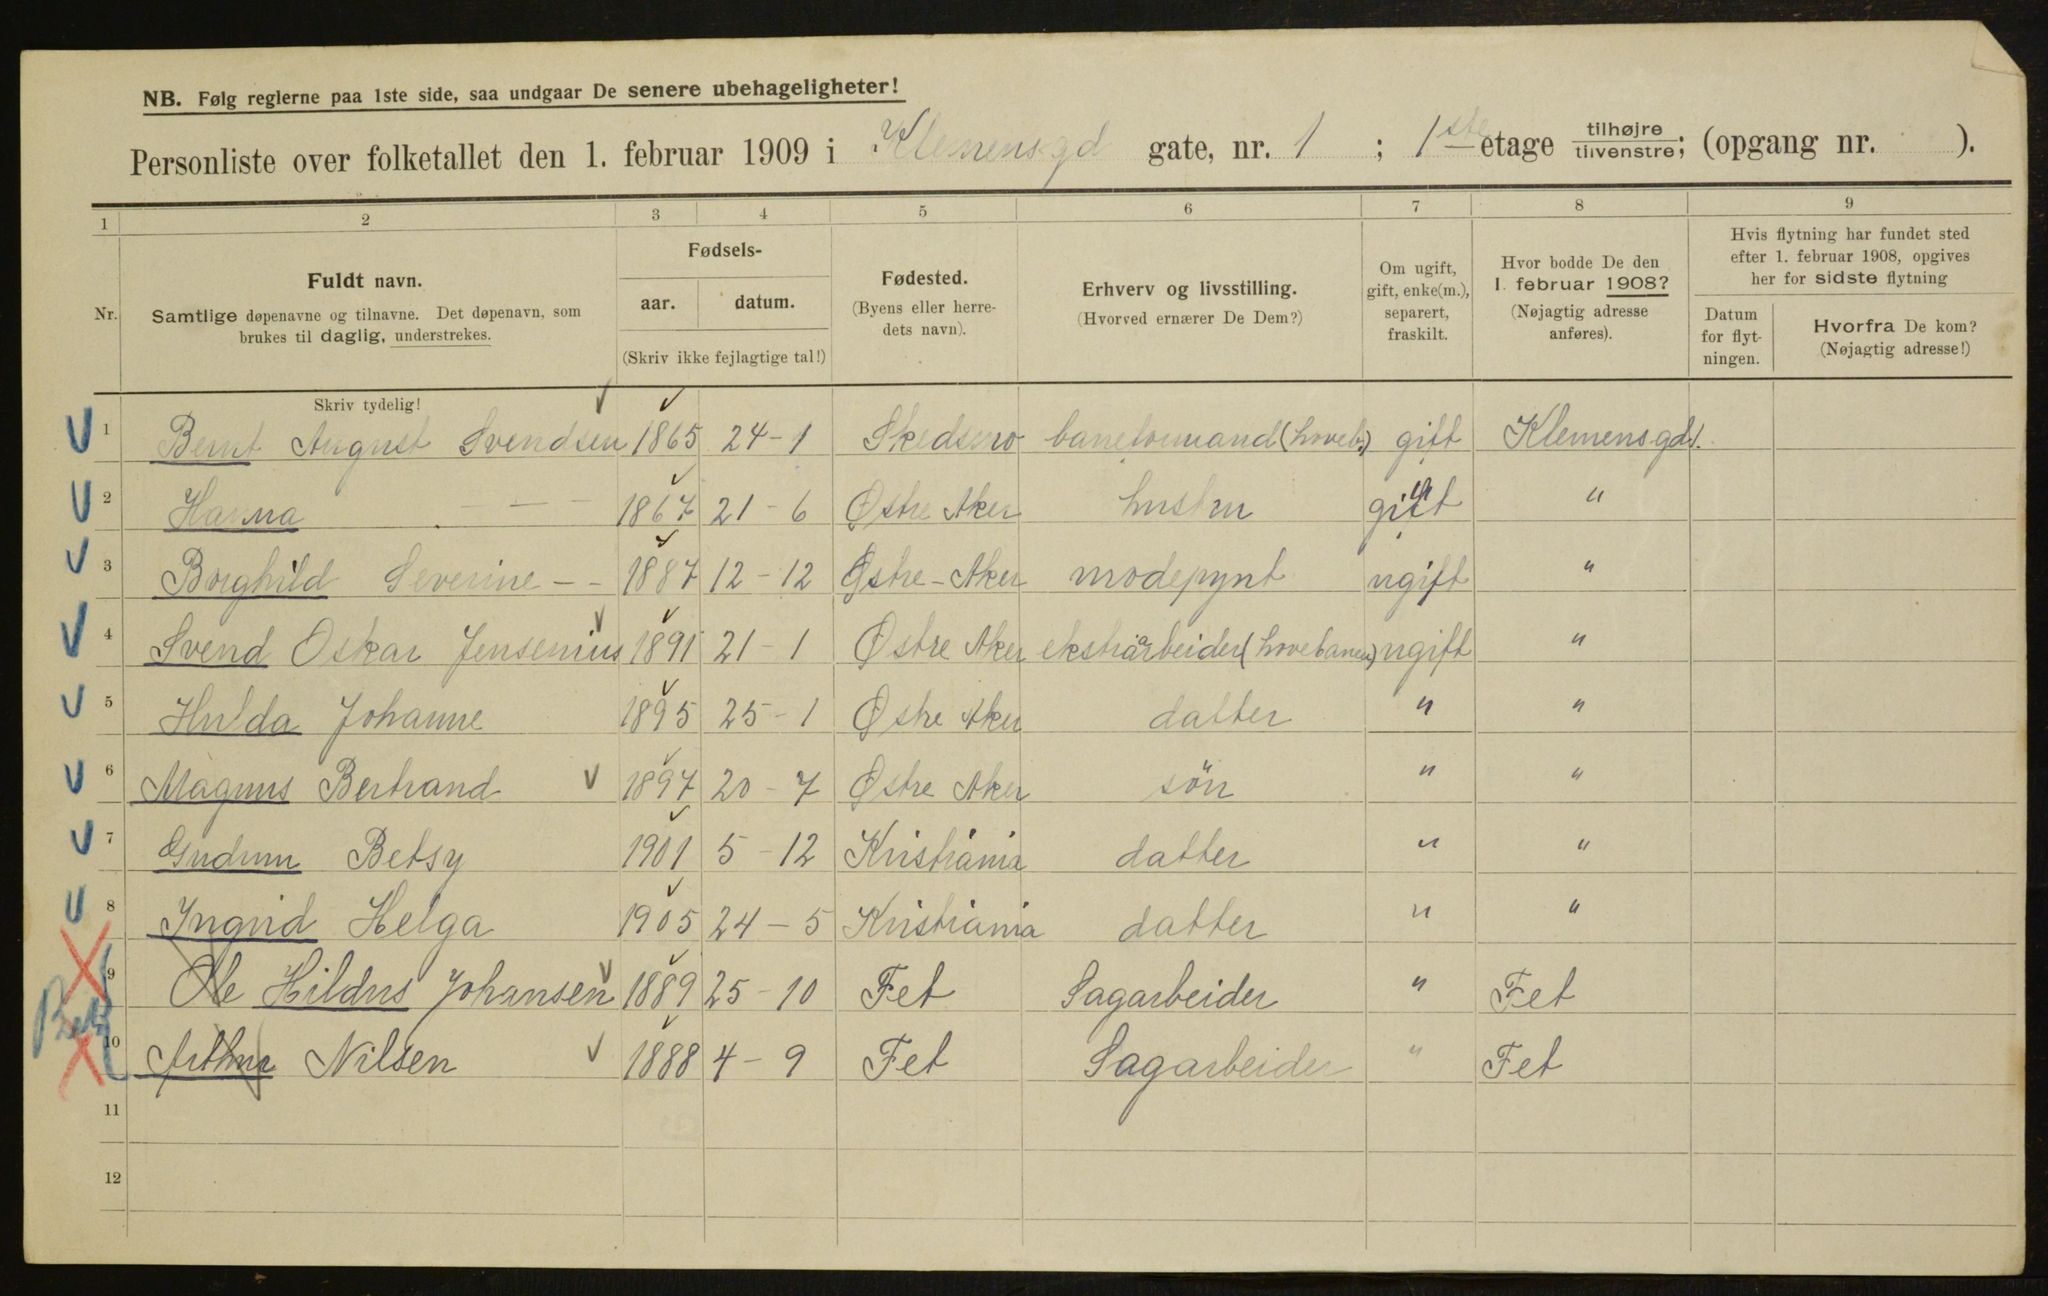 NB. Følg reglerne paa 1ste side, saa undgaar De senere ubehageligheter!
Personliste over folketallet den 1. februar 1909 i Klemensgd gate, nr. 1 ; 1ste etage tilhøjre tilvenstre; (opgang nr. ).
1 2 3 4 5 6 7 8 9
Nr.
Fuldt navn.
Samtlige døpenavne og tilnavne. Det døpenavn, som
brukes til daglig, understrekes.
Skriv tydelig!
Fødsels-
aar. datum.
(Skriv ikke fejlagtige tal!)
Fødested.
(Byens eller herre-
dets navn).
Erhverv og livsstilling.
(Hvorved ernærer De Dem?)
Om ugift,
gift, enke(m.),
separert,
fraskilt.
Hvor bodde De den
1. februar 1908?
(Nøjagtig adresse
anføres).
Hvis flytning har fundet sted
efter 1. februar 1908, opgives
her for sidste flytning
Datum
for flyt-
ningen.
Hvorfra De kom?
(Nøjagtig adresse!)
1 Bernt August Svendsen 1865 24-1 Skedsmo baneformand (hovedb.) gift Klemensgd 1.
2 Hanna - - - 1867 21-6 Østre Aker hustru gift "
3 Borghild Severine - - 1887 12-12 Østre-Aker modepynt ugift "
4 Svend Oskar Jensenius 1891 21-1 Østre Aker ekstraarbeider (hovebanen) ugift "
5 Hulda Johanne 1895 25-1 Østre Aker datter " "
6 Magnus Bertrand 1897 20-7 Østre Aker sön " "
7 Gudrun Betsy 1901 5-12 Kristiania datter " "
8 Ingrid Helga 1905 24-5 Kristiania datter " "
9 Ole Hildus Johansen 1889 25-10 Fet Sagarbeider " Fet
10 Arthur Nilsen 1888 4-9 Fet Sagarbeider " Fet
11
12